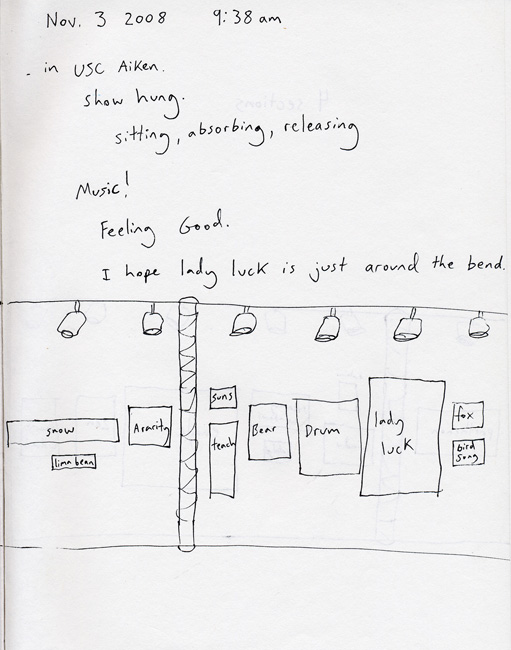 Nov. 3 2008 9:38 am
- in USC Aiken.
show hung.
sitting, absorbing, releasing
4 sections
Music!
Feeling Good.
I hope lady luck is just around the bend.
snow
lima bean
Ararity
suns
teach
Bear
Drum
lady
luck
fox
bird
song